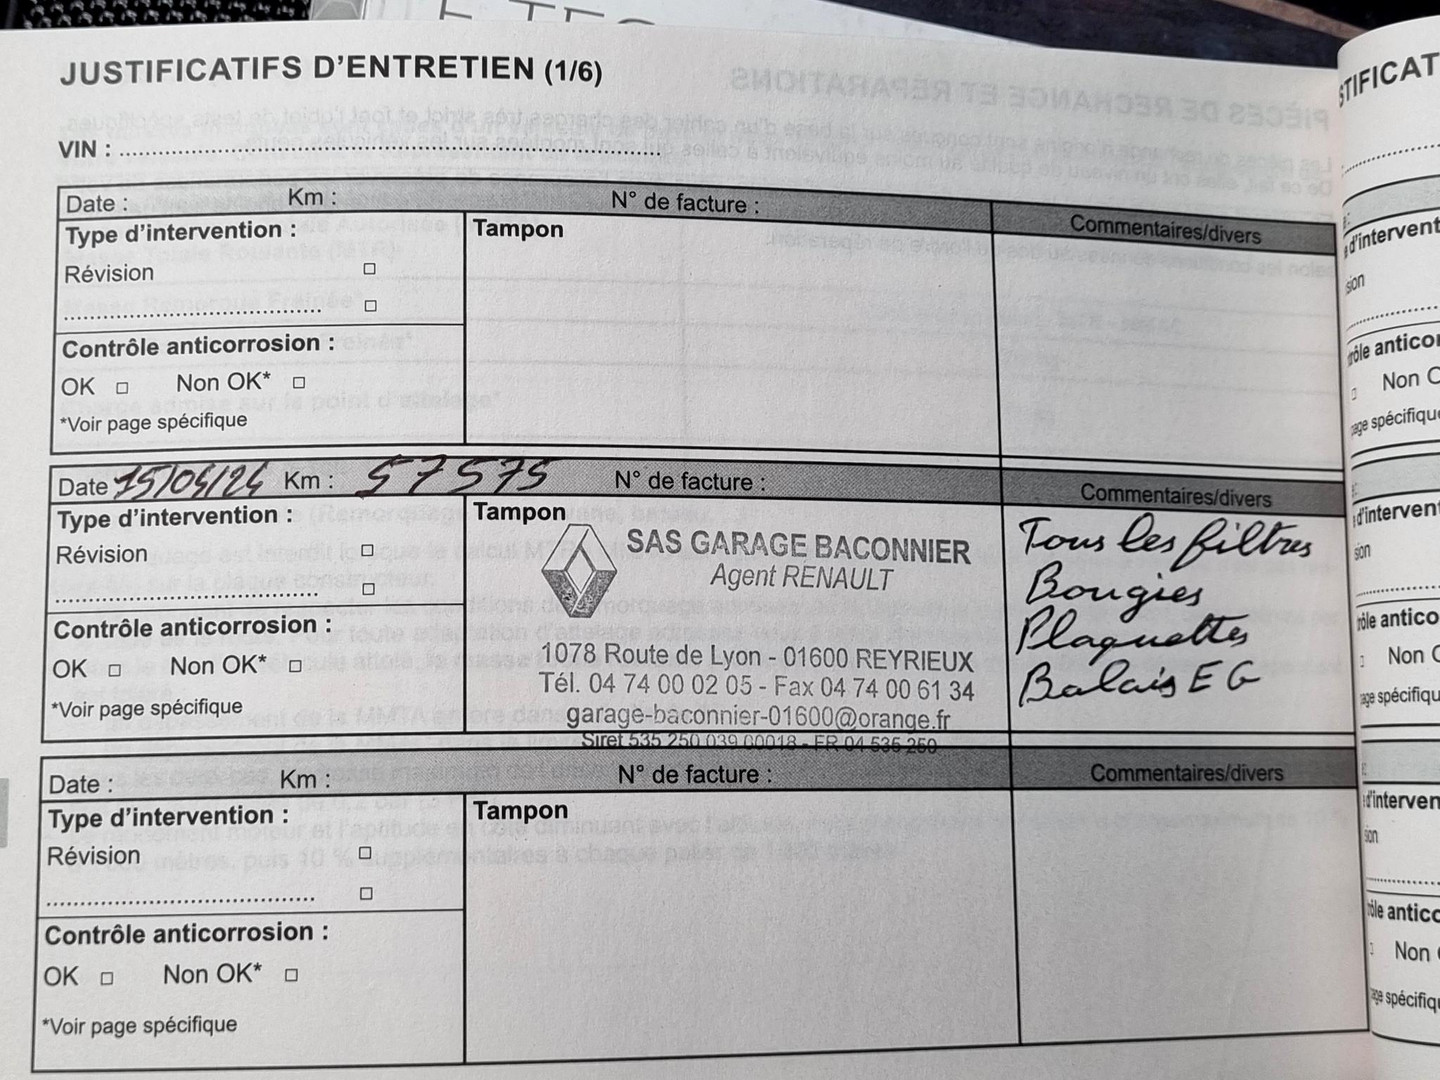 JUSTIFICATIFS D'ENTRETIEN (1/6)
VIN :
Date : Km : N° de facture : Commentaires/divers
Type d'intervention : Tampon
Révision
Contrôle anticorrosion :
OK Non OK*
*Voir page spécifique
Date 15/04/24 Km : 57575 N° de facture : Commentaires/divers
Type d'intervention : Tampon
Révision
Contrôle anticorrosion :
OK Non OK*
*Voir page spécifique
SAS GARAGE BACONNIER
Agent RENAULT
1078 Route de Lyon - 01600 REYRIEUX
Tél. 04 74 00 02 05 - Fax 04 74 00 61 34
garage-baconnier-01600@orange.fr
Siret 535 250 039 00018 - FR 04 535 250
Tous les filtres
Bougies
Plaquettes
Balais E G
Date : Km : N° de facture : Commentaires/divers
Type d'intervention : Tampon
Révision
Contrôle anticorrosion :
OK Non OK*
*Voir page spécifique